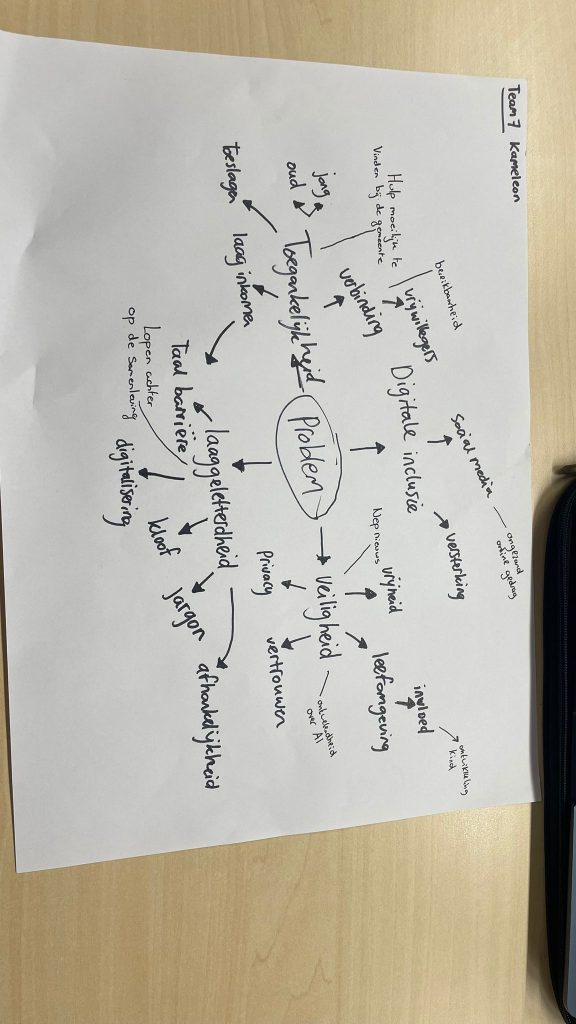 Team 7 Kameleon
bereikbaarheid
vrijwilligers
Hulp moeilijk te
vinden bij de gemeente
verbinding
Digitale inclusie
social media
ongezond
online gedrag
versterking
jong
oud
Toegankelijkheid
beslagen
laag inkomen
Probleem
Nepnieuws
vrijheid
Veiligheid
privacy
vertrouwen
leefomgeving
invloed
ontwikkeling
kind
over AI
laaggeletterdheid
Taal barrière
Lopen achter
op de samenleving
digitalisering
kloof
Jargon
afhankelijkheid